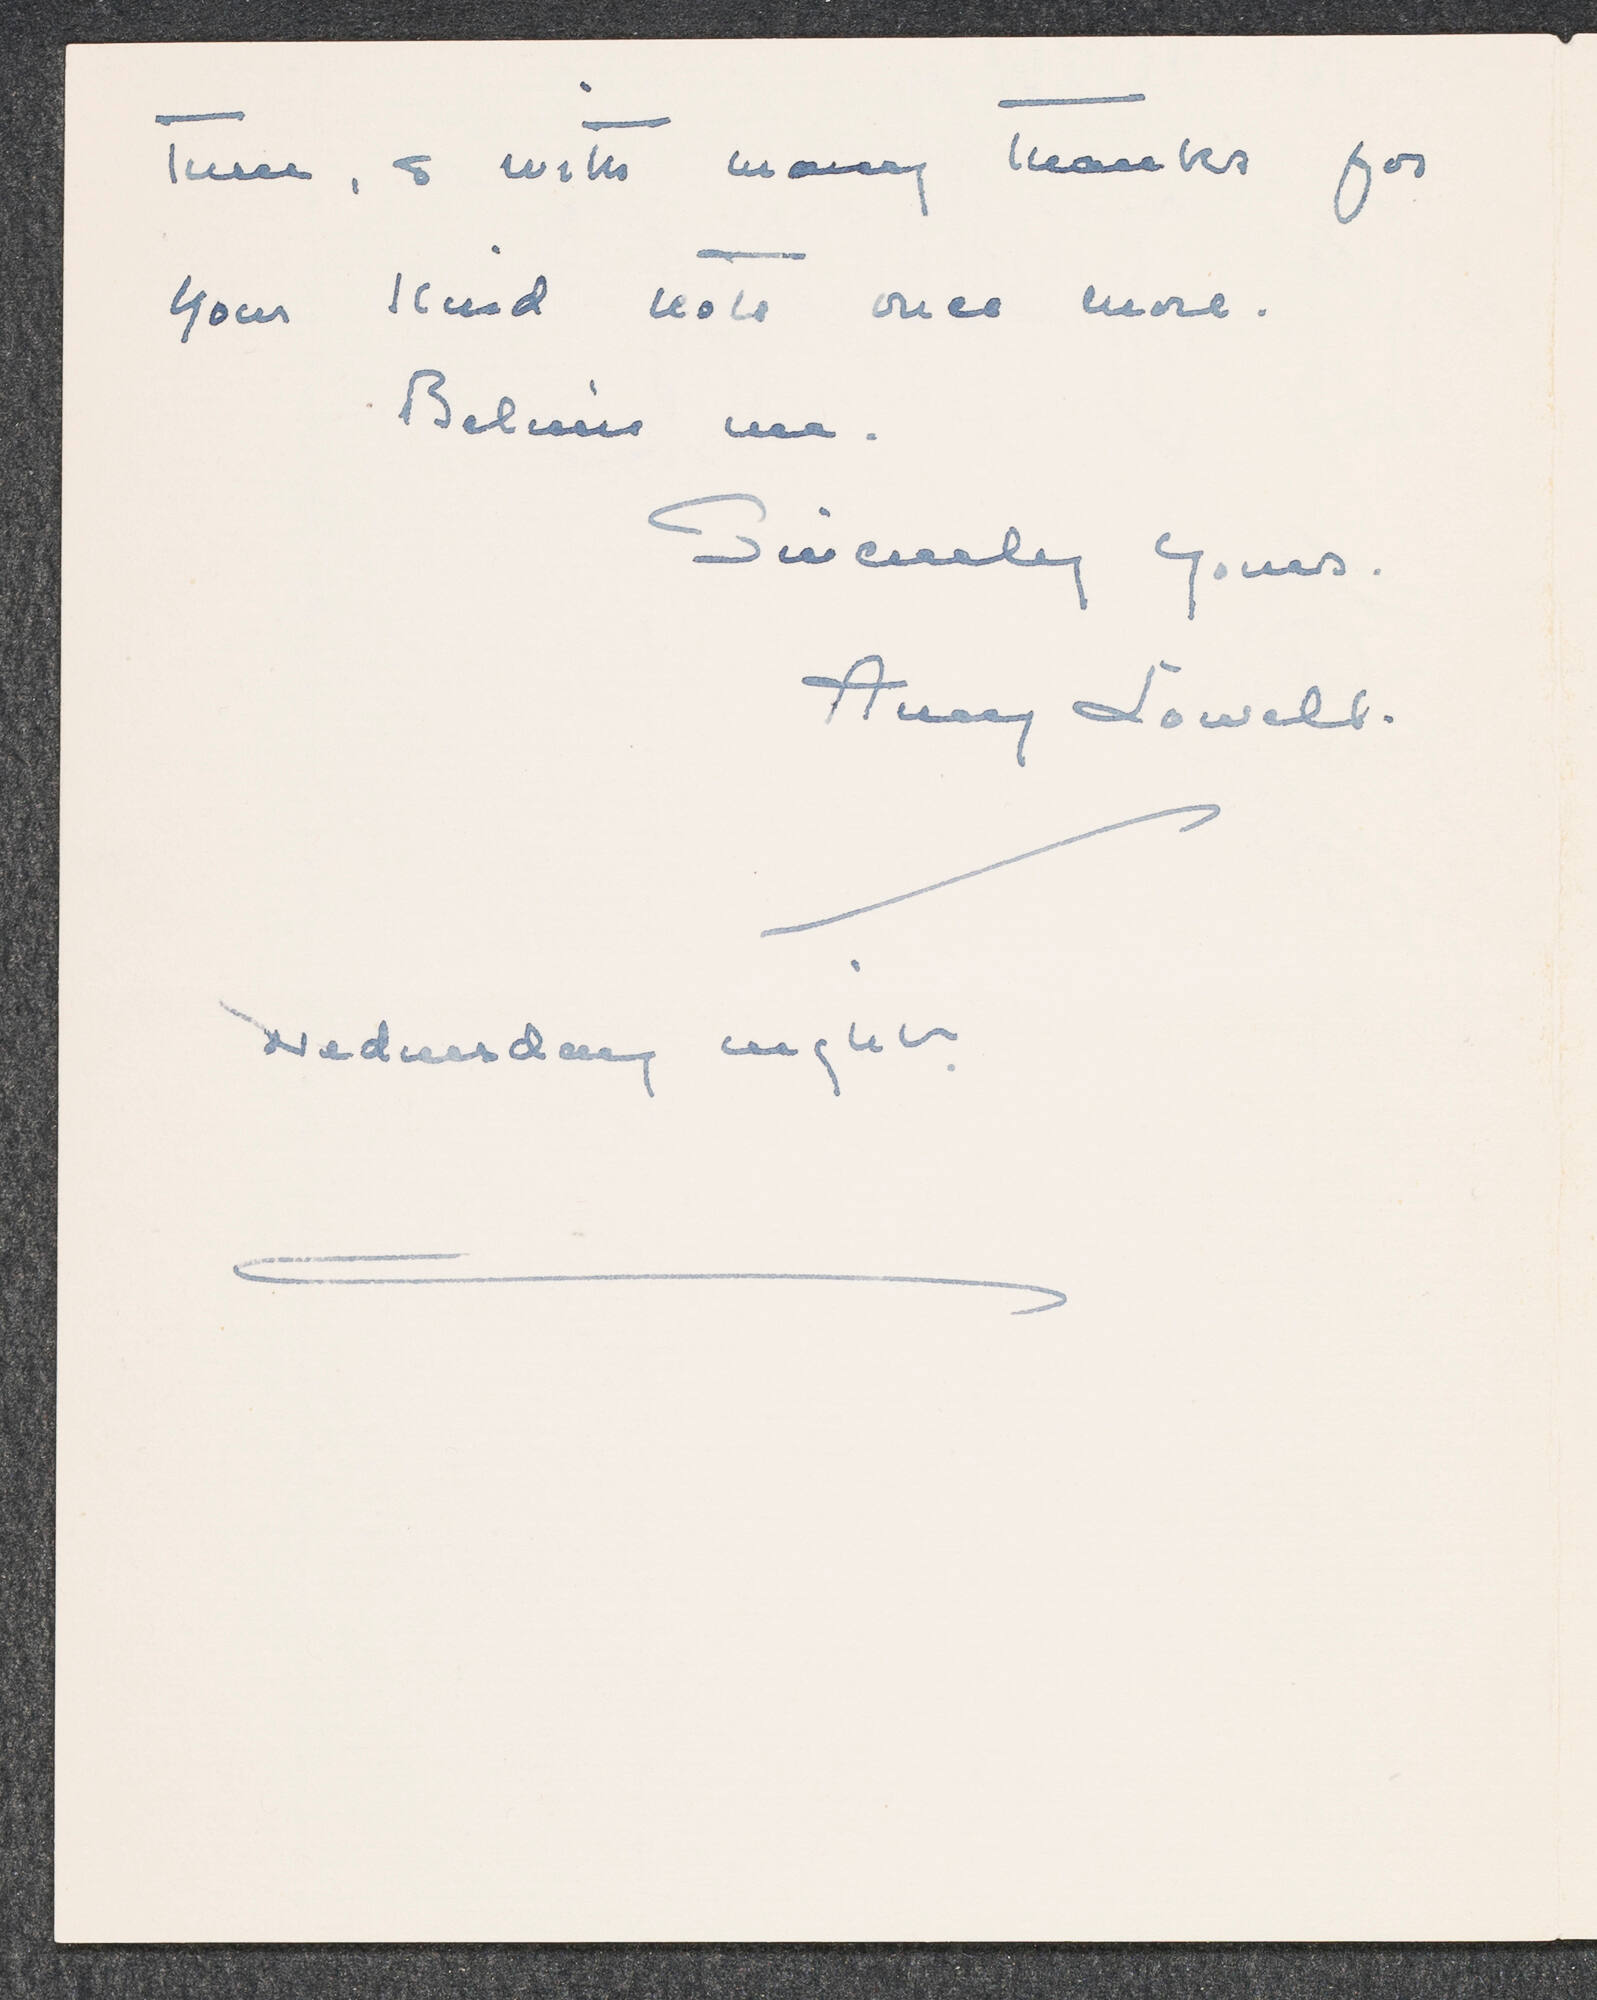 then, & with many thanks for
your kind note once more.
Believe me.
Sincerely Yours.
Amy Lowell.
Wednesday night.